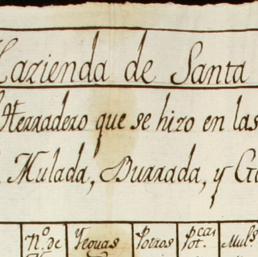 Hazienda de Santa
Herradero que se hizo en las
Mulada, Burrada, y
N.º de Yeguas Potros p.cas Pot.s Mul.s